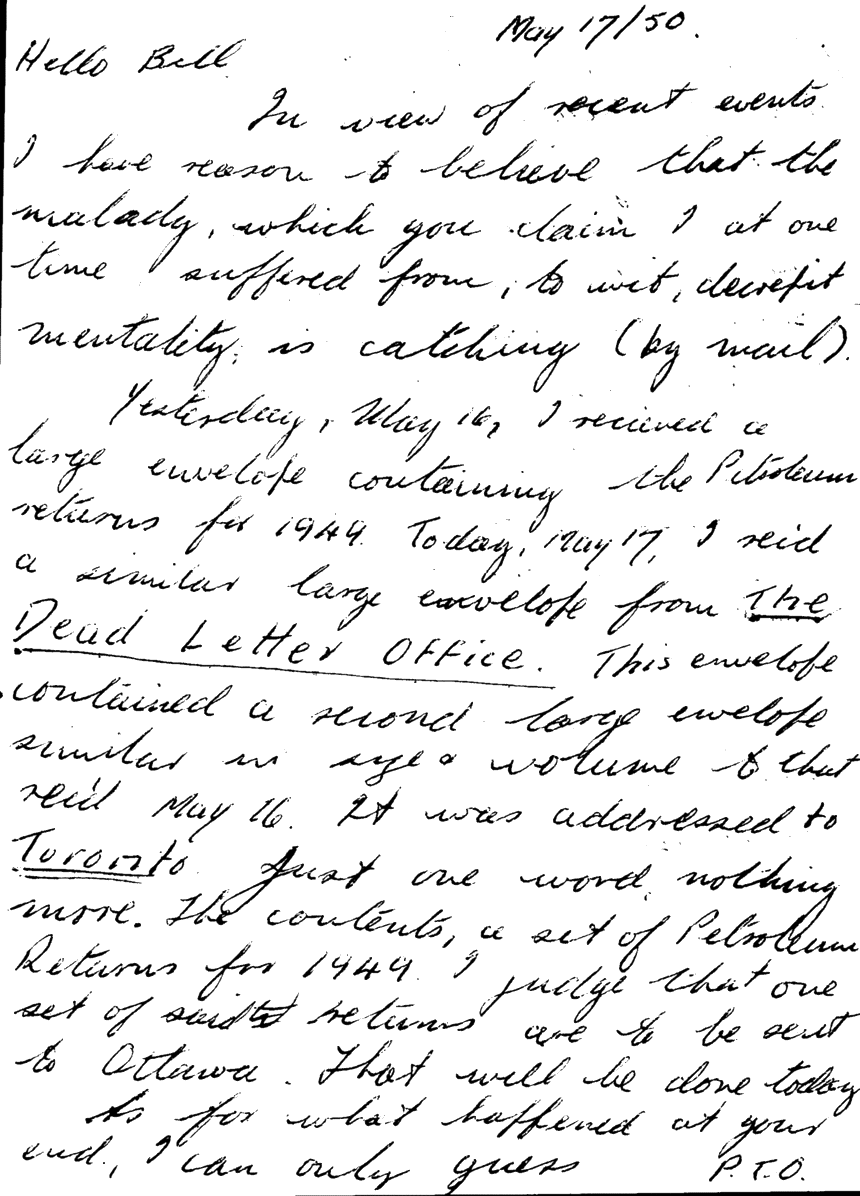 May 17/50.
Hello Bill
In view of recent events
I have reason to believe that the
malady, which you claim I at one
time suffered from, to wit, decrepit
mentality, is catching (by mail).
Yesterday, May 16, I recieved a
large envelope containing the Petroleum
returns for 1949. Today, May 17, I rec'd
a similar large envelope from The
Dead Letter Office. This envelope
contained a second large envelope
similar in size & volume to that
rec'd May 16. It was addressed to
Toronto. Just one word, nothing
more. The contents, a set of Petroleum
Returns for 1949. I judge that one
set of said returns are to be sent
to Ottawa. That will be done today
As for what happened at your
end, I can only guess P.T.O.